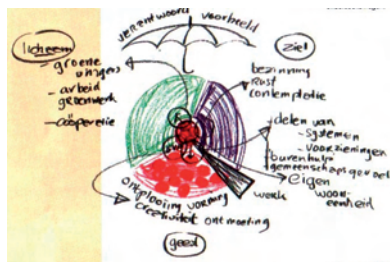 verantwoord voorbeeld
lichaam
groene vingers
- arbeid
groenwerk
- coöperatie
ziel
bezinning
Rust
contemplatie
delen van
- Systemen
- Voorzieningen
burenhulp
gemeenschapsgevoel
eigen
woon-
eenheid
werk
ontplooiing vorming
creativiteit ontmoeting
geest